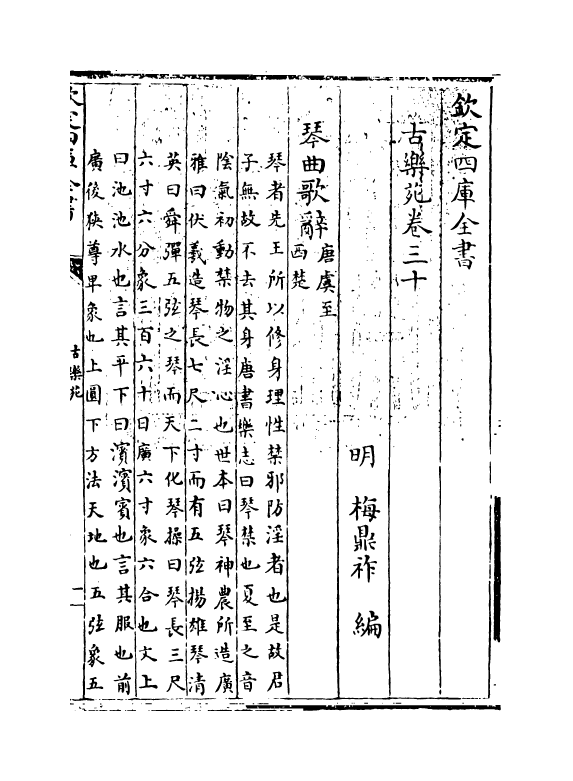 欽定四庫全書
古樂苑卷三十
明 梅鼎祚 編
琴曲歌辭唐虞至西楚
琴者先王所以修身理性禁邪防淫者也是故君
子無故不去其身唐書樂志曰琴禁也夏至之音
陰氣初動禁物之淫心也世本曰琴神農所造廣
雅曰伏羲造琴長七尺二寸而有五弦揚雄琴清
英曰舜彈五弦之琴而天下化琴操曰琴長三尺
六寸六分象三百六十日廣六寸象六合也文上
曰池池水也言其平下曰濱濱賓也言其服也前
廣後狹尊卑象也上圓下方法天地也五弦象五
欽定四庫全書
古樂苑
一